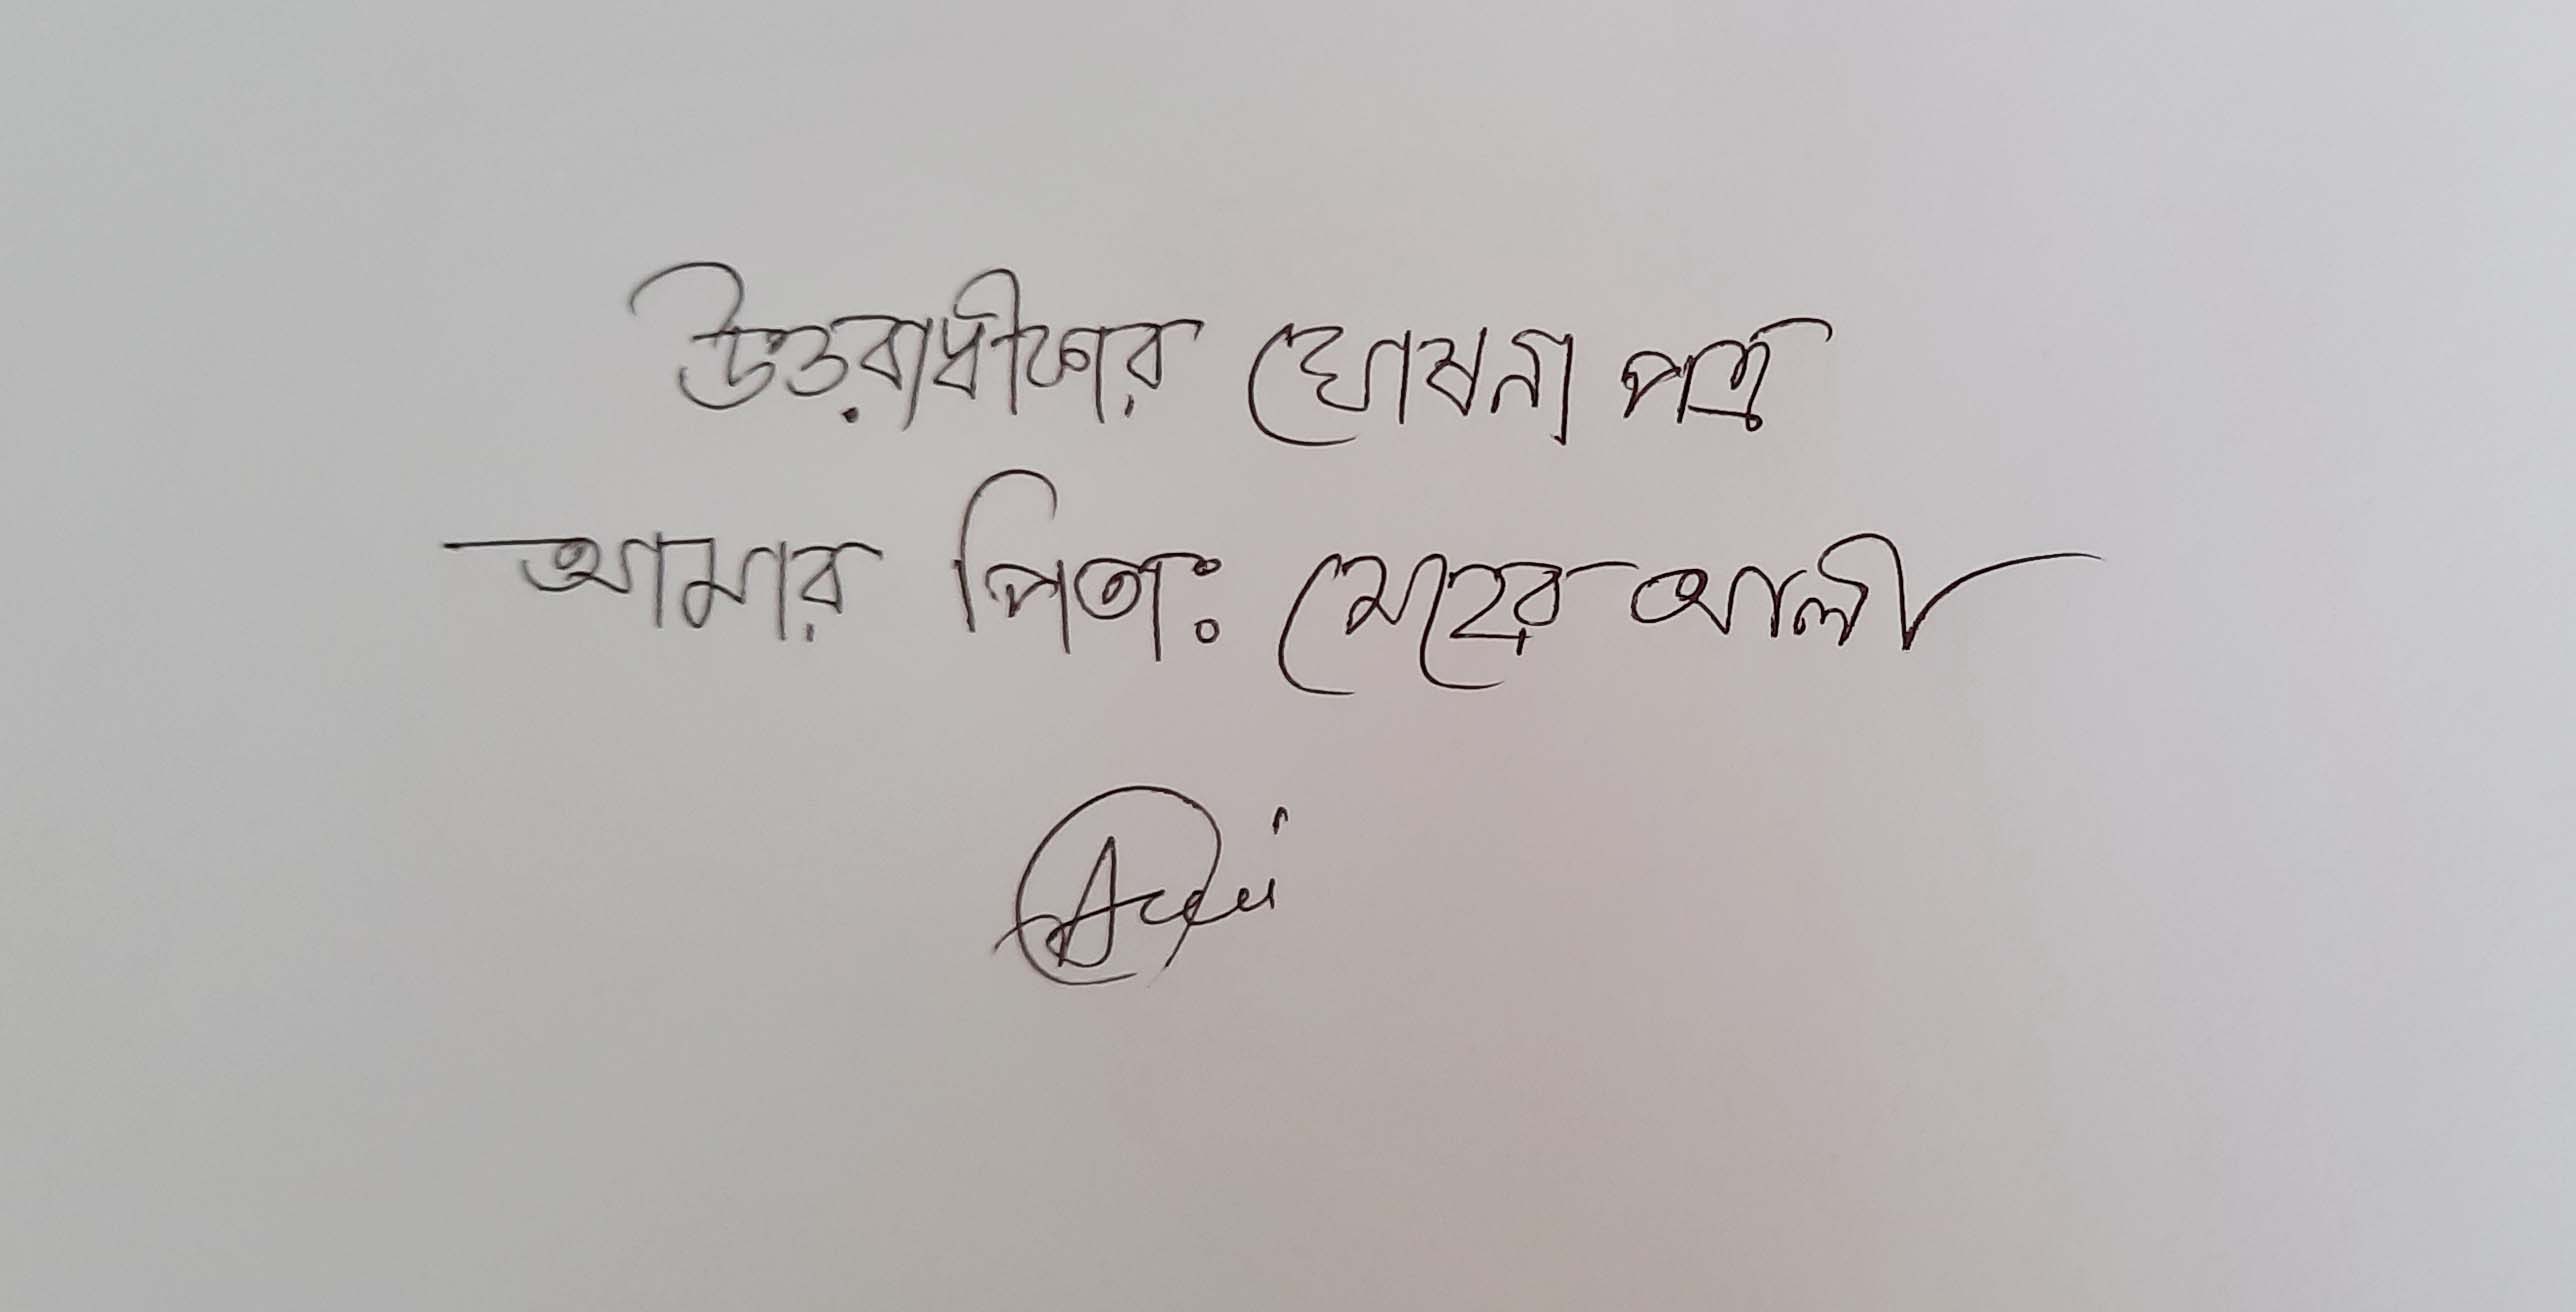 উত্তরাধীকার ঘোষনা পত্র
আমার পিতাঃ মেহের আলী